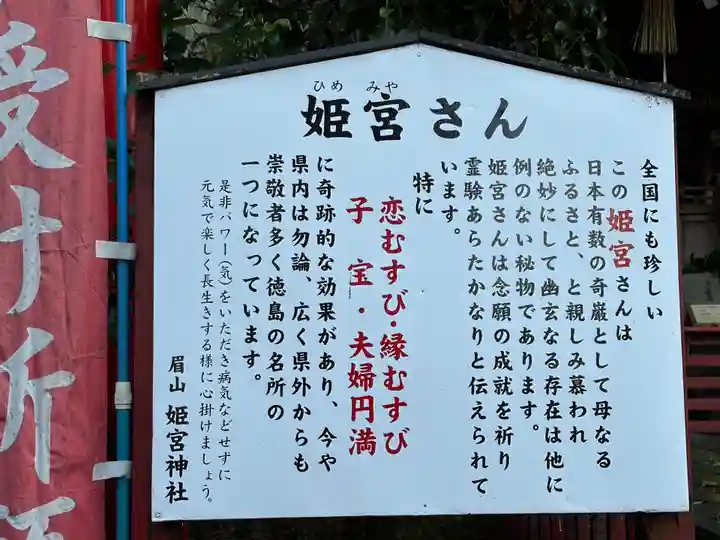 姫宮さん
ひめ みや
全国にも珍しい
この姫宮さんは
日本有数の奇巌として母なる
ふるさと、と親しみ慕われ
絶妙にして幽玄なる存在は他に
例のない秘物であります。
姫宮さんは念願の成就を祈り
霊験あらたかなりと伝えられて
います。
特に
恋むすび・縁むすび
子宝・夫婦円満
に奇跡的な効果があり、今や
県内は勿論、広く県外からも
崇敬者多く徳島の名所の
一つになっています。
是非パワー(気)をいただき病気などせずに
元気で楽しく長生きする様に心掛けましょう。
眉山 姫宮神社
受十祈